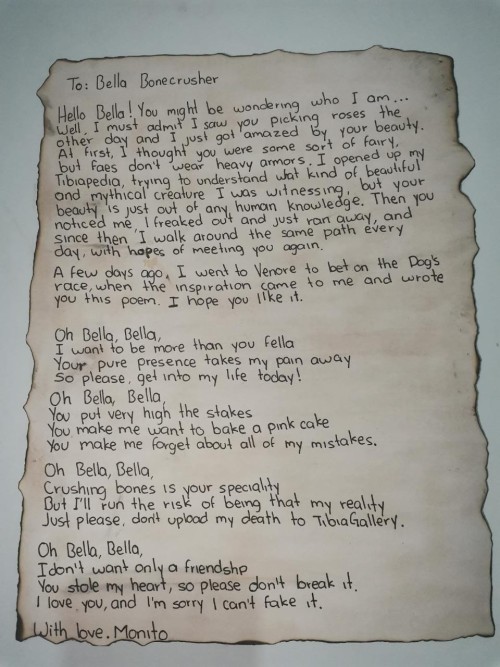 To: Bella Bonecrusher
Hello Bella! You might be wondering who I am...
Well, I must admit I saw you picking roses the
other day and I just got amazed by your beauty.
At first, I thought you were some sort of fairy,
but faes don't wear heavy armors. I opened up my
Tibiapedia, trying to understand what kind of beautiful
and mythical creature I was witnessing, but your
beauty is just out of any human knowledge. Then you
noticed me, I freaked out and just ran away, and
since then I walk around the same path every
day, with hopes of meeting you again.
A few days ago, I went to Venore to bet on the Dog's
race, when the inspiration came to me and wrote
you this poem. I hope you like it.
Oh Bella, Bella,
I want to be more than you fella
Your pure presence takes my pain away
So please, get into my life today!
Oh Bella, Bella,
You put very high the stakes
You make me want to bake a pink cake
You make me forget about all of my mistakes.
Oh Bella, Bella,
Crushing bones is your speciality
But I'll run the risk of being that my reality
Just please, don't upload my death to TibiaGallery.
Oh Bella, Bella,
I don't want only a friendshp
You stole my heart, so please don't break it.
I love you, and I'm sorry I can't fake it.
With love. Monito